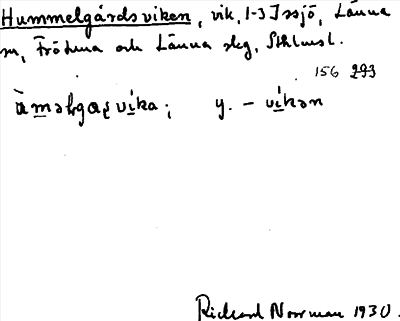 Hummelgårdsviken, vik, 1-3 Issjö, Länna
sn, Frötuna och Länna skg, Sthlmsl.
156 293
y. - vikən
Richard Norrman 1930.